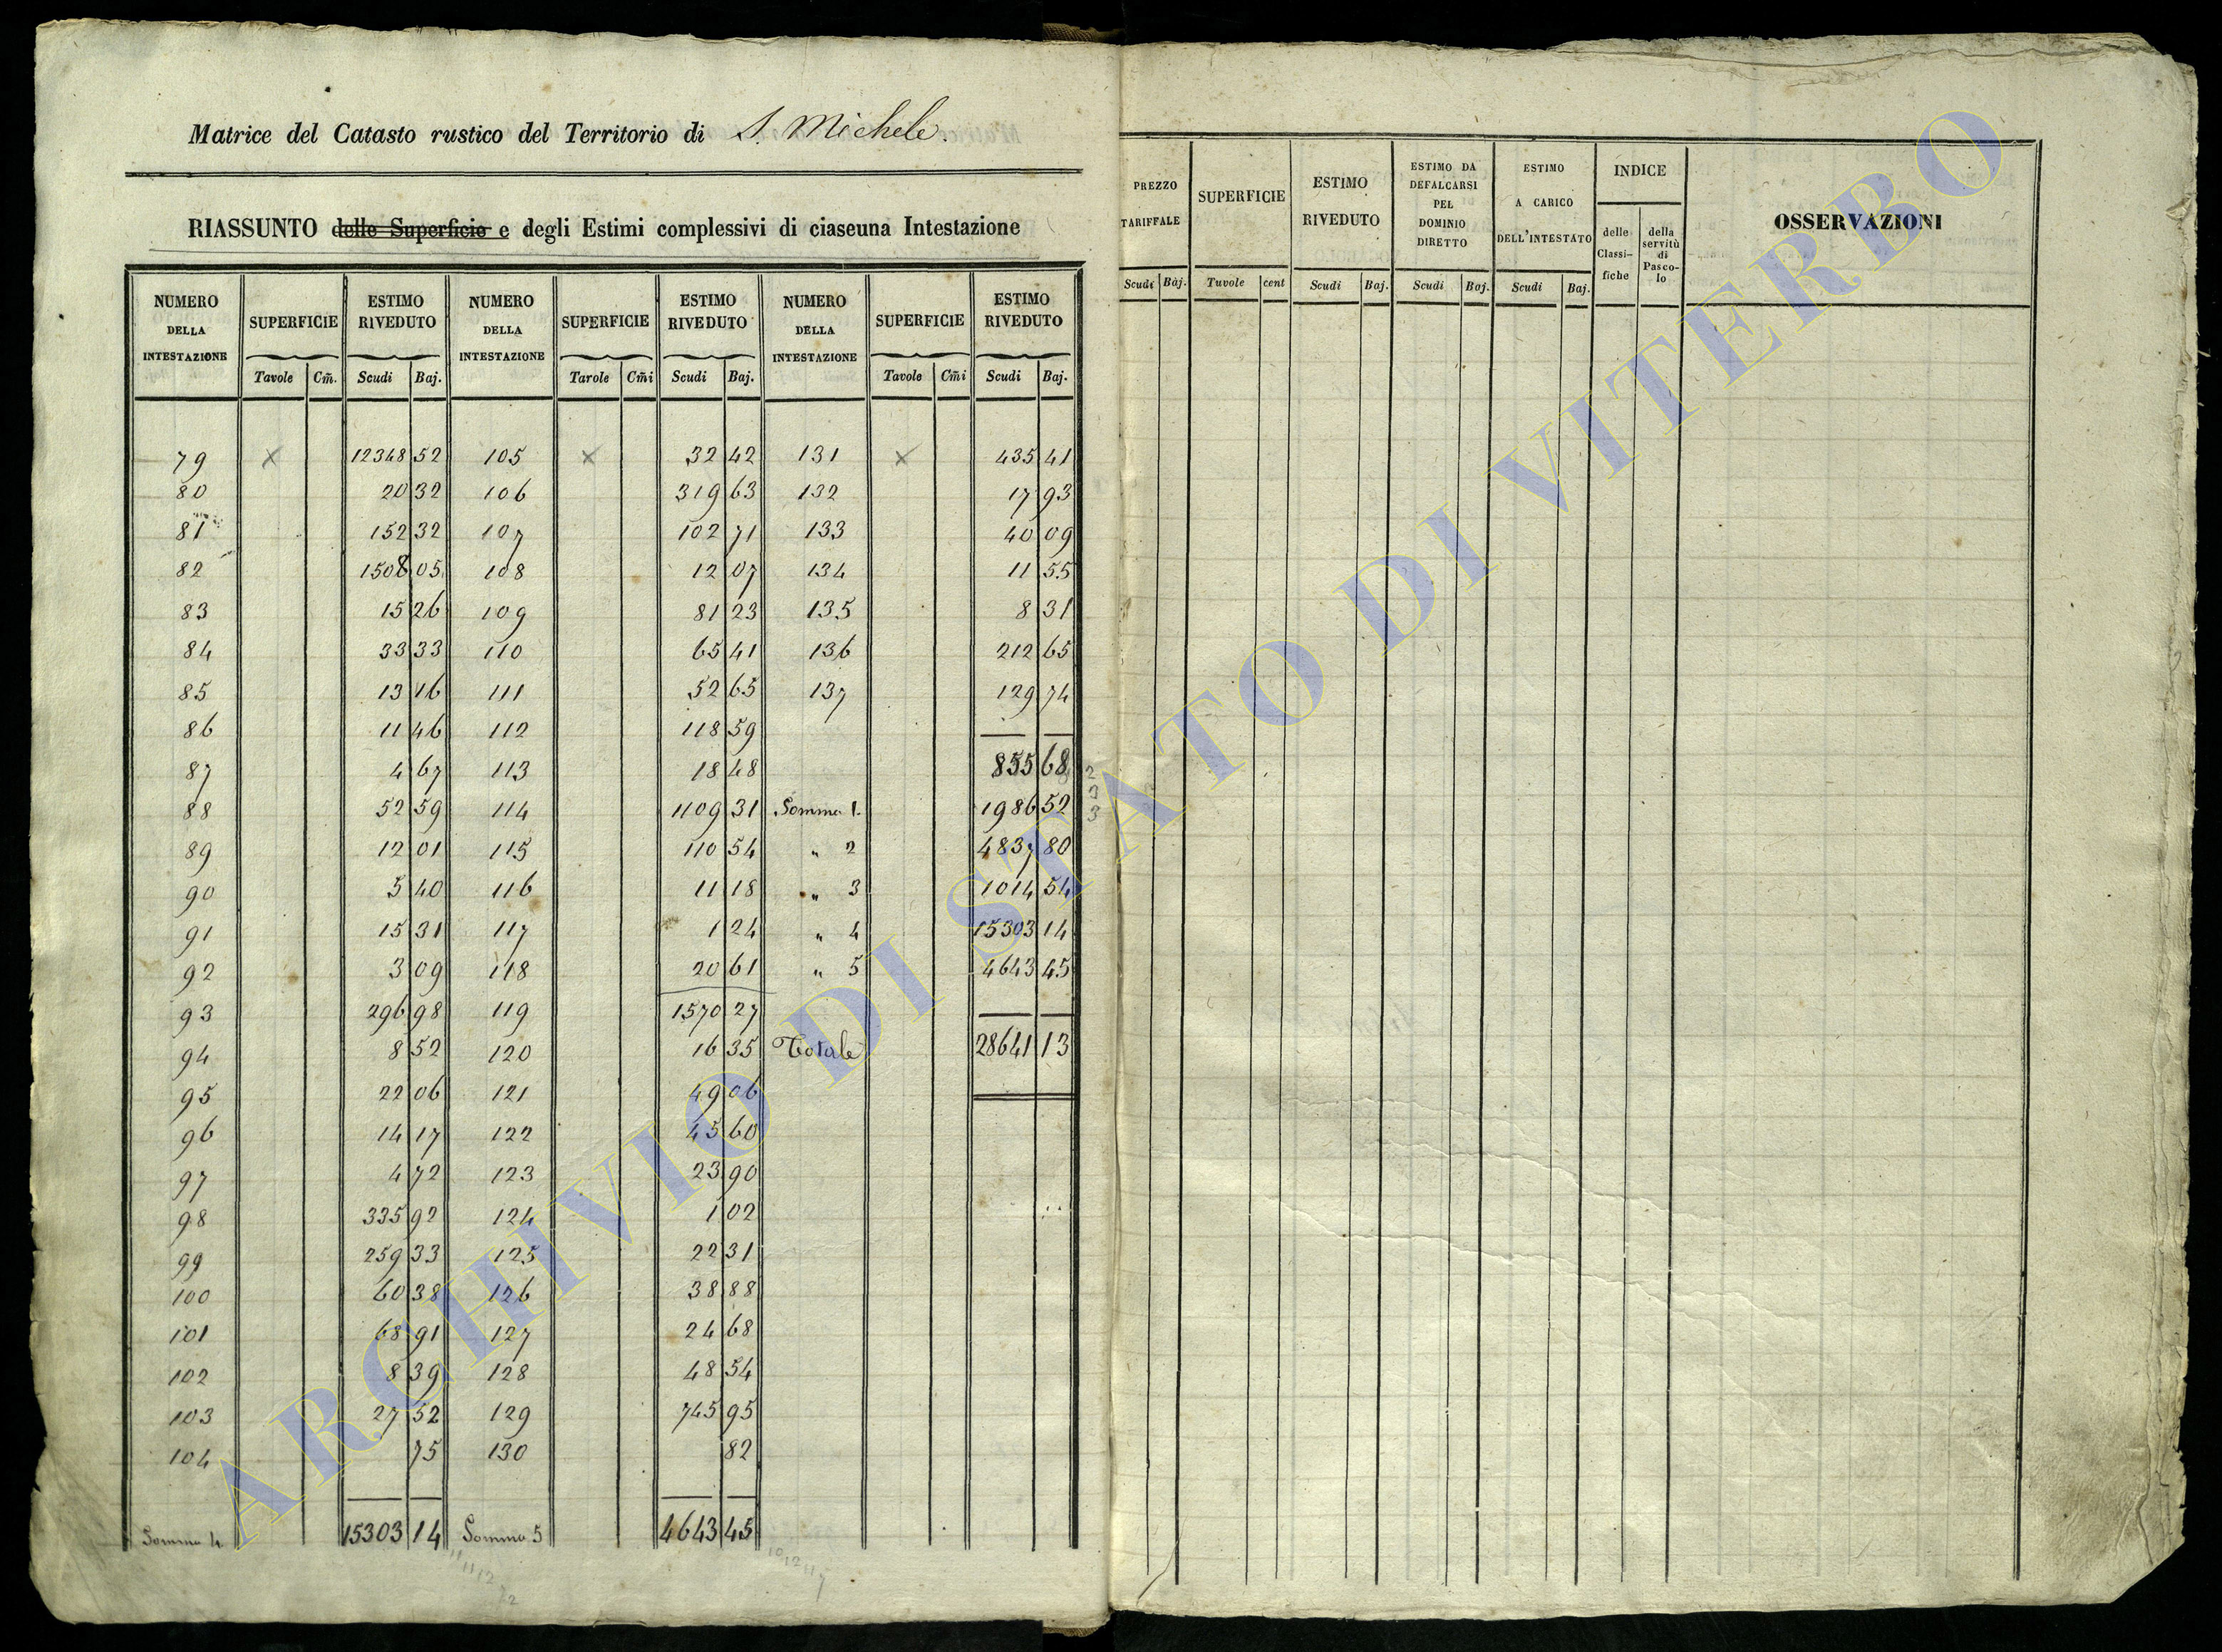 Matrice del Catasto rustico del Territorio di S. Michele.
RIASSUNTO delle Superficie e degli Estimi complessivi di ciaseuna Intestazione
NUMERO DELLA INTESTAZIONE SUPERFICIE ESTIMO RIVEDUTO NUMERO DELLA INTESTAZIONE SUPERFICIE ESTIMO RIVEDUTO NUMERO DELLA INTESTAZIONE SUPERFICIE ESTIMO RIVEDUTO
Tavole Cm̃. Scudi Baj. Tarole Cm̃i Scudi Baj. Tavole Cm̃i Scudi Baj.
79 x 12348 52 105 x 32 42 131 x 435 41
80 20 32 106 319 63 132 17 93
81 152 32 107 102 71 133 40 09
82 1508 05 108 12 07 134 11 55
83 15 26 109 81 23 135 8 31
84 33 33 110 65 41 136 212 65
85 13 16 111 52 65 137 129 74
86 11 46 112 118 59
87 4 67 113 18 48 855 68
88 52 59 114 1109 31 Somma 1. 1986 52
89 12 01 115 110 54 " 2 4837 80
90 5 40 116 11 18 " 3 1014 54
91 15 31 117 1 24 " 4 15303 14
92 3 09 118 20 61 " 5 4643 45
93 296 98 119 1570 27
94 8 52 120 16 35 Totale 28641 13
95 22 06 121 49 06
96 14 17 122 45 60
97 4 72 123 23 90
98 335 92 124 1 02
99 259 33 125 22 31
100 60 38 126 38 88
101 68 91 127 24 68
102 8 39 128 48 54
103 27 52 129 745 95
104 75 130 82
Somma 4. 15303 14 Somma 5 4643 45
PREZZO TARIFFALE SUPERFICIE ESTIMO RIVEDUTO ESTIMO DA DEFALCARSI PEL DOMINIO DIRETTO ESTIMO A CARICO DELL'INTESTATO INDICE OSSERVAZIONI
delle Classi-fiche della servitù di Pasco-lo
Scudi Baj. Tuvole cent Scudi Baj. Scudi Baj. Scudi Baj.
ARCHIVIO DI STATO DI VITERBO